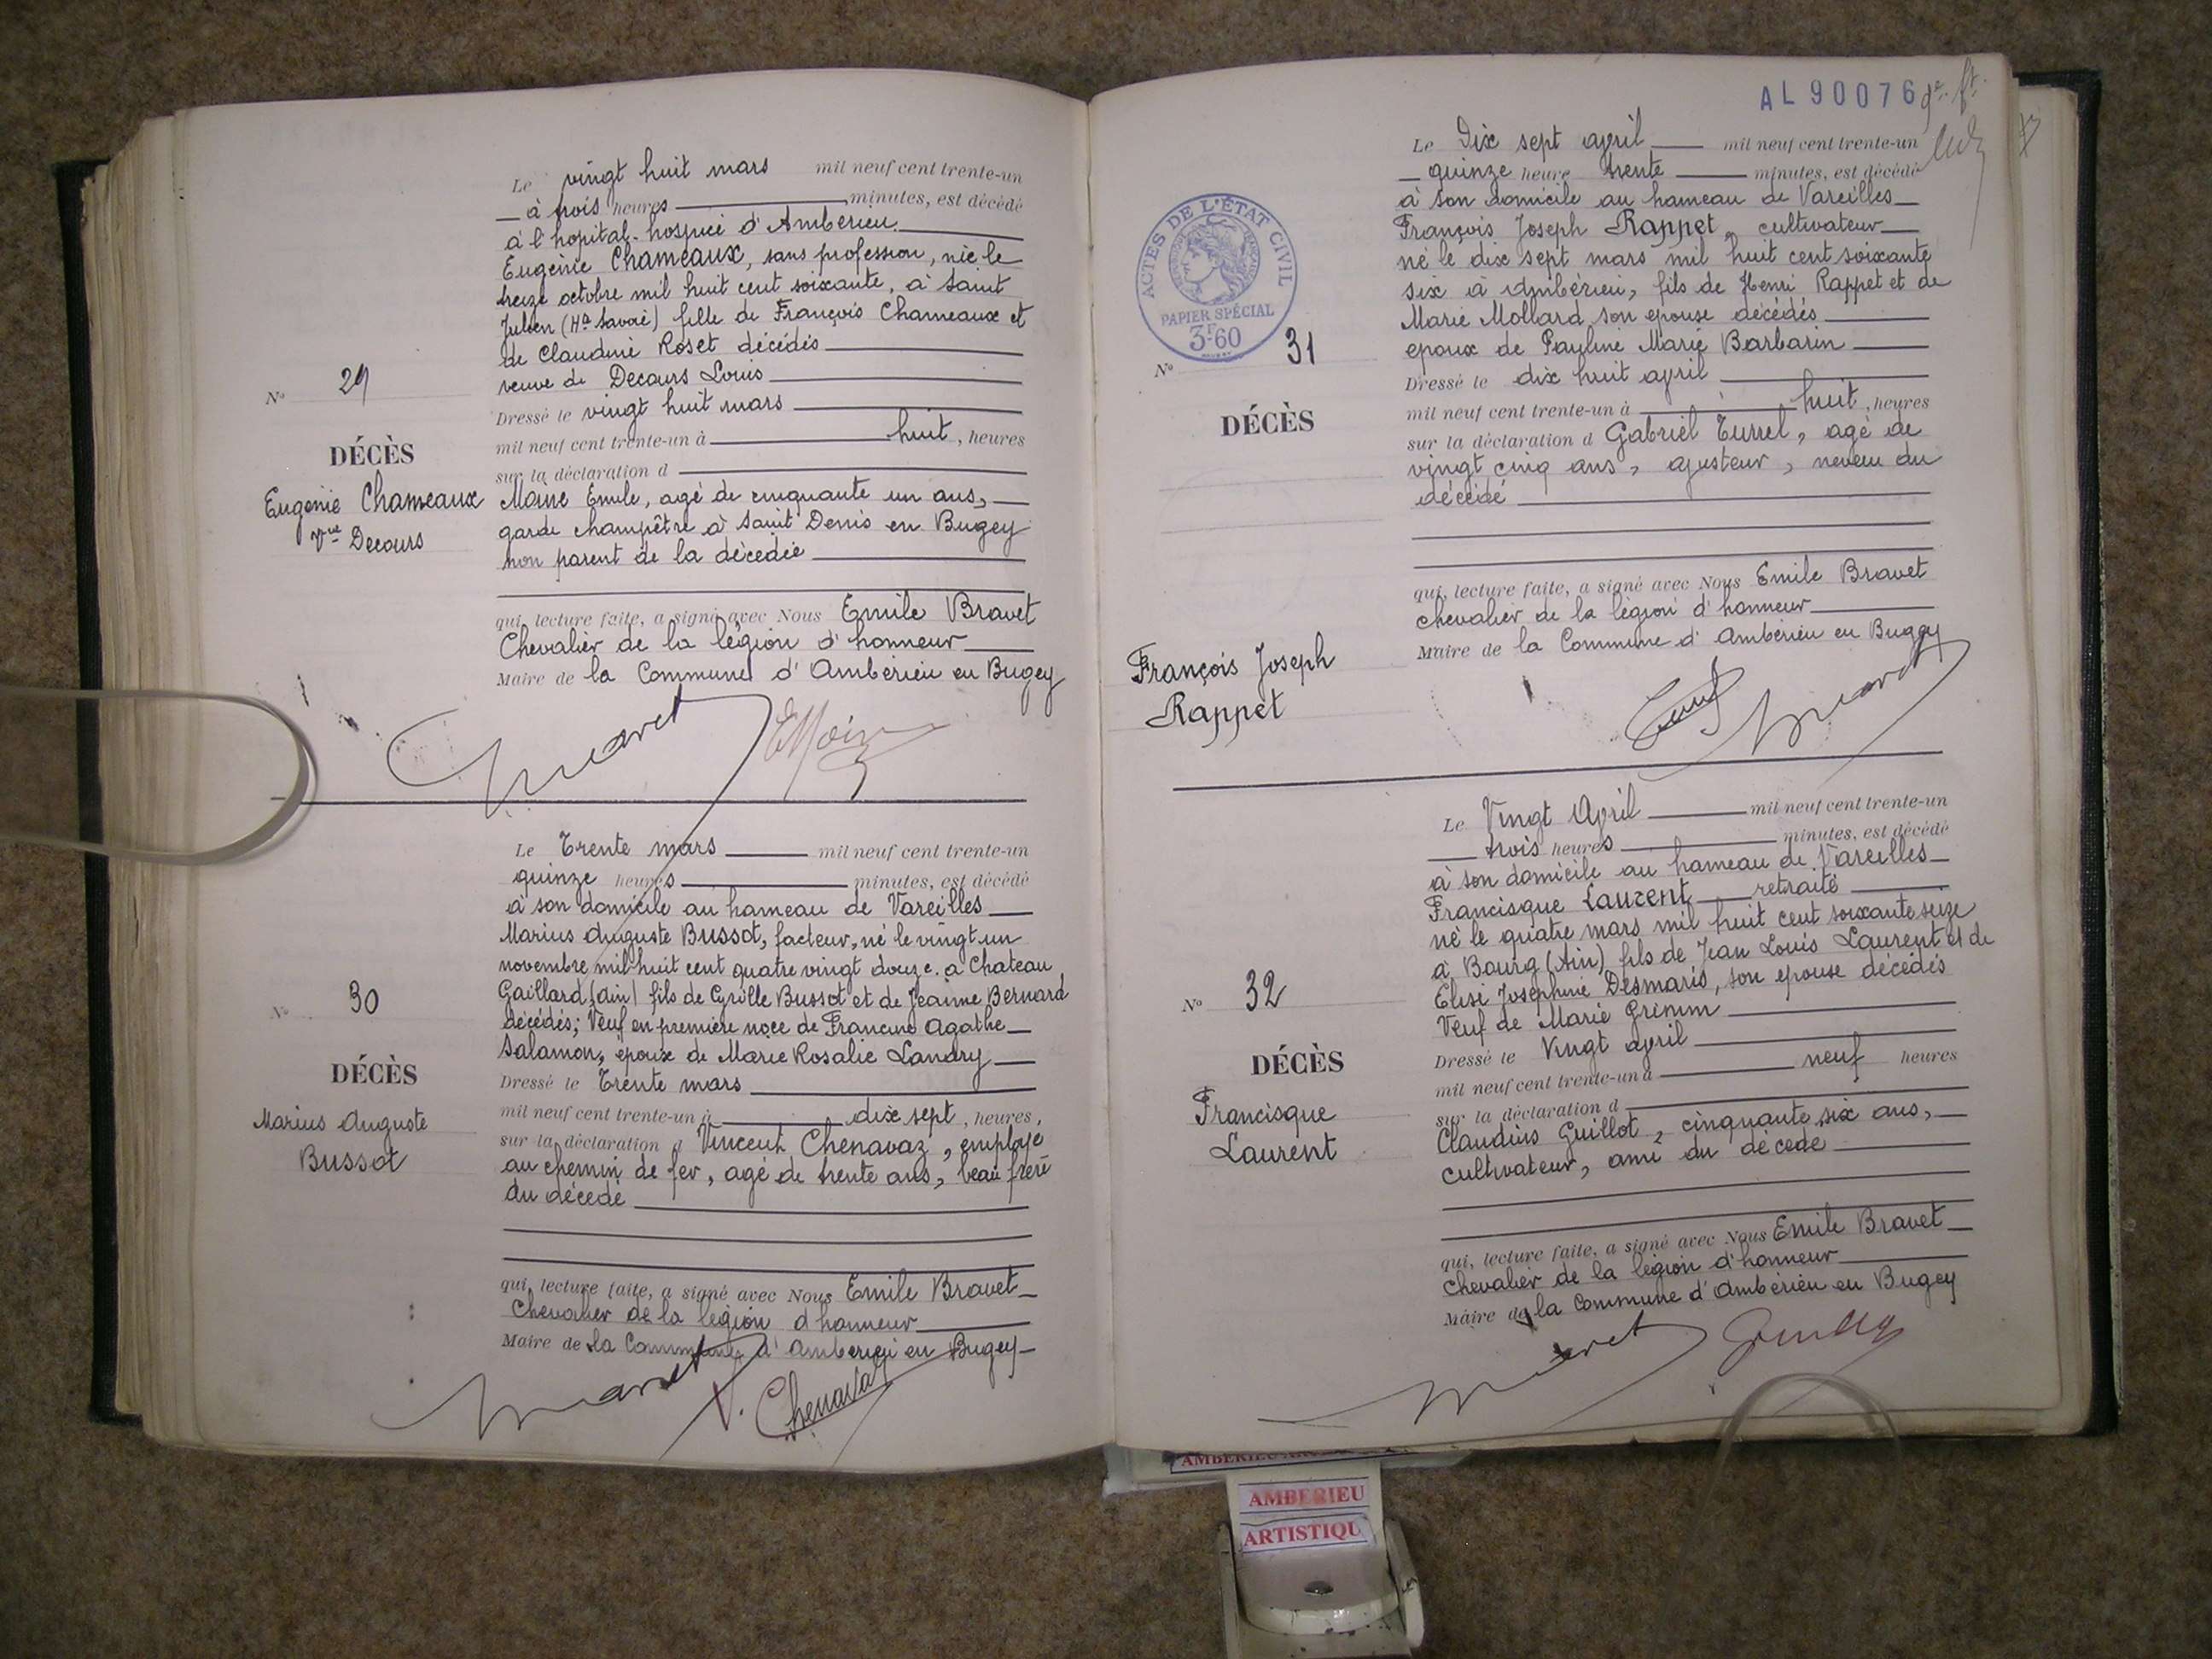 Le vingt huit mars mil neuf cent trente-un
à trois heures minutes, est décédé
à l'hopital-hospice d'Ambérieu
Eugénie Chameaux, sans profession, née le
treize octobre mil huit cent soixante, à Saint
Julien (Hte Savoie) fille de François Chameaux et
de Claudine Roset décédés
veuve de Decours Louis
Dressé le vingt huit mars
mil neuf cent trente-un à huit, heures
sur la déclaration d
Emile, agé de cinquante un ans,
garde champêtre à Saint Denis en Bugey
non parent de la décédée
qui, lecture faite, a signé avec Nous Emile Bravet
Chevalier de la légion d'honneur
Maire de la Commune d'Ambérieu en Bugey
No 29
DÉCÈS
Eugénie Chameaux
Vve Decours
Le Trente mars mil neuf cent trente-un
quinze heures minutes, est décédé
à son domicile au hameau de Vareilles
Marius Auguste Bussot, facteur, né le vingt un
novembre mil huit cent quatre vingt douze à Chateau
Gaillard (Ain) fils de Cyrille Bussot et de Jeanne Bernard
décédés; Veuf en première noce de Francine Agathe
Salamon, époux de Marie Rosalie Landry
Dressé le Trente mars
mil neuf cent trente-un à dix sept, heures,
sur la déclaration d Vincent Chenavaz, employé
au chemin de fer, agé de trente ans, beau frère
du décédé
qui, lecture faite, a signé avec Nous Emile Bravet
Chevalier de la légion d'honneur
Maire de la Commune d'Ambérieu en Bugey
V. Chenavaz
No 30
DÉCÈS
Marius Auguste
Bussot
AL90076
Le Dix sept april mil neuf cent trente-un
quinze heure trente minutes, est décédé
à son domicile au hameau de Vareilles
François Joseph Rappet, cultivateur
né le dix sept mars mil huit cent soixante
six à Ambérieu, fils de Henri Rappet et de
Marie Mollard son epouse décédés
epoux de Pauline Marie Barbarin
Dressé le dix huit april
mil neuf cent trente-un à huit, heures
sur la déclaration d Gabriel Turrel, agé de
vingt cinq ans, ajusteur, neveu du
décédé
qui, lecture faite, a signé avec Nous Emile Bravet
chevalier de la légion d'honneur
Maire de la Commune d'Ambérieu en Bugey
ACTES DE L'ÉTAT CIVIL
PAPIER SPÉCIAL
3F60
No 31
DÉCÈS
François Joseph
Rappet
Le Vingt April mil neuf cent trente-un
trois heures minutes, est décédé
à son domicile au hameau de Vareilles
Francisque Laurent retraité
né le quatre mars mil huit cent soixante seize
à Bourg (Ain) fils de Jean Louis Laurent et de
Elise Joséphine Desmaris, son epouse décédés
Veuf de Marie Grimm
Dressé le Vingt april
mil neuf cent trente-un à neuf heures
sur la déclaration d
Claudius Guillot, cinquante six ans,
cultivateur, ami du décédé
qui, lecture faite, a signé avec Nous Emile Bravet
Chevalier de la légion d'honneur
Maire de la Commune d'Ambérieu en Bugey
No 32
DÉCÈS
Francisque
Laurent
AMBERIEU
ARTISTIQU